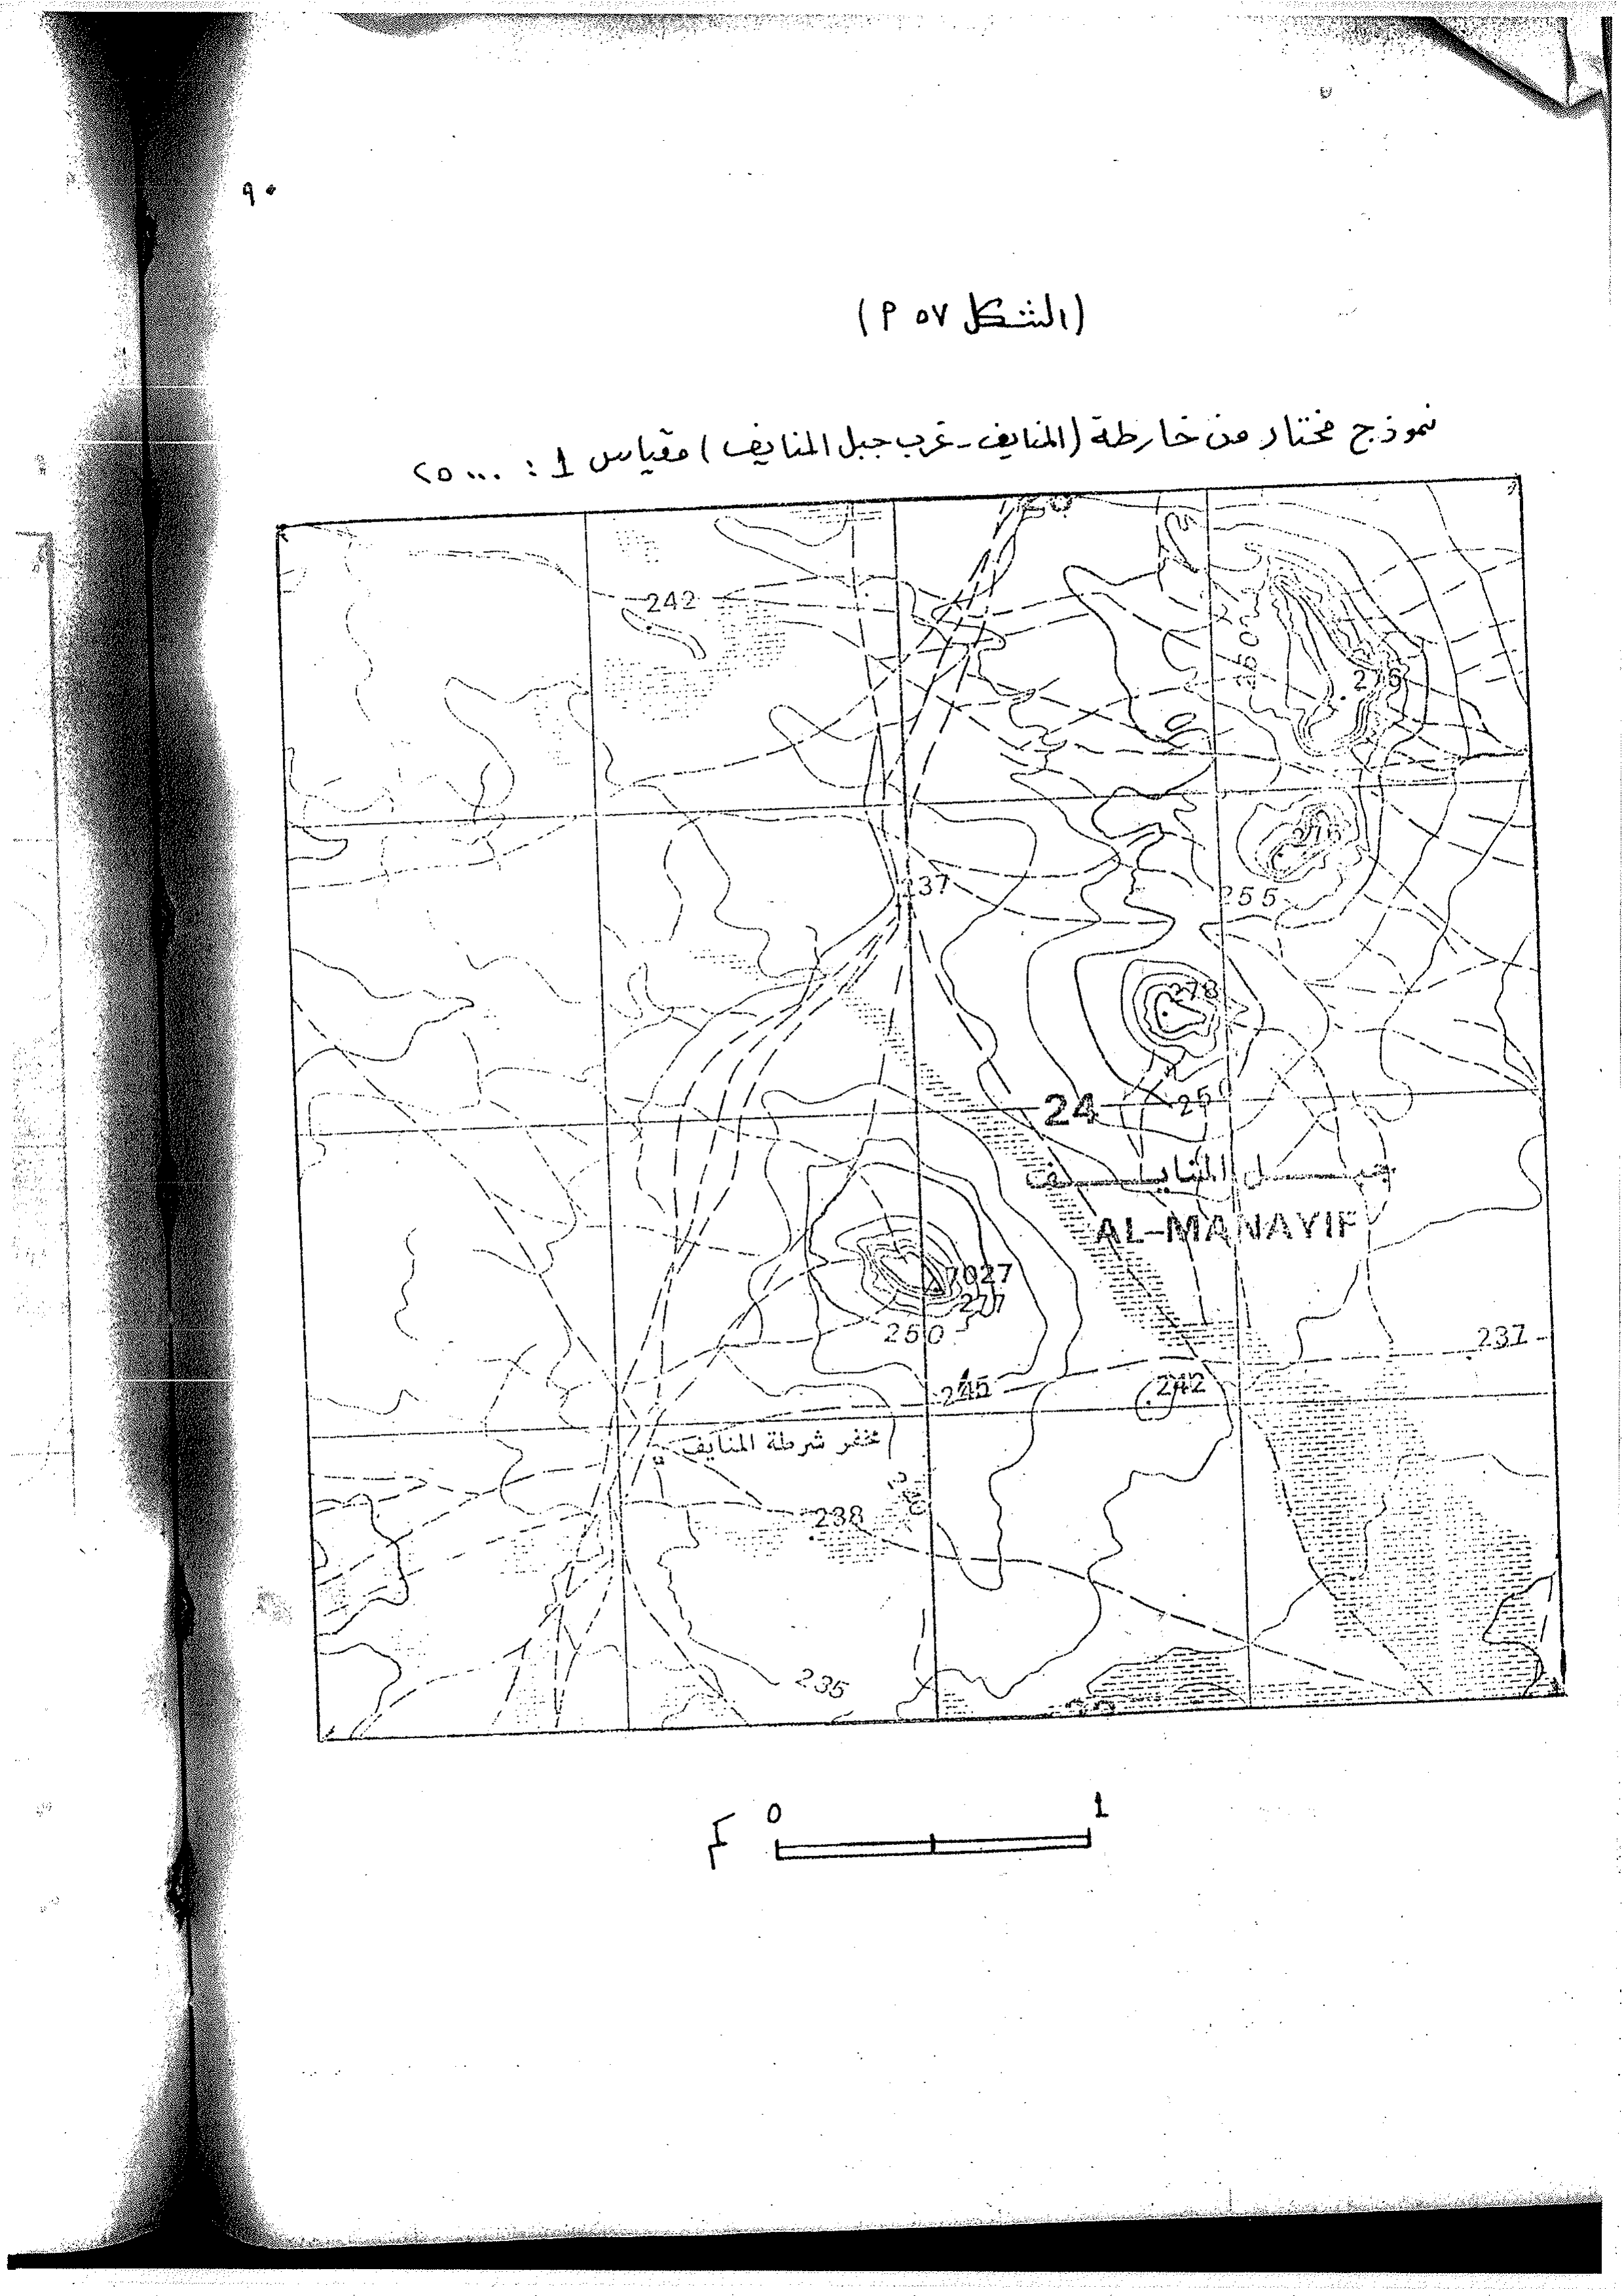 ٩٠
(الشكل ٥٧ م)
نموذج مختار من خارطة (المنايف - غرب جبل المنايف) مقياس 1 : ٢٥٠٠٠
242
250
276
276
237
255
278
24
250
جبل المنايف
AL-MANAYIF
7027
277
250
237
245
242
مخفر شرطة المنايف
238
235
كم
0
1